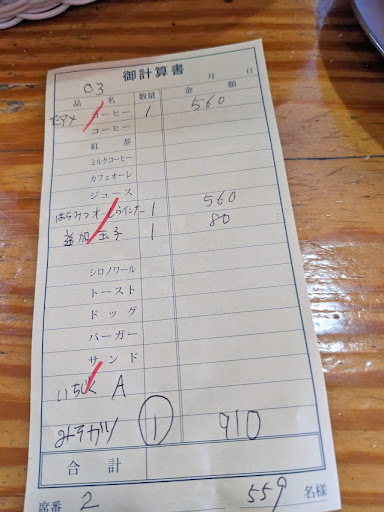 御計算書
03
月 日
品 名 数量 金 額
コーヒー 1 560
コーヒー
紅 茶
ミルクコーヒー
カフェオーレ
ジュース
はちみつオーレウインナー 1 560
追加 玉子 1 80
シロノワール
トースト
ドッグ
バーガー
サンド
A
みそカツ 1 910
合 計
席番 2 559 名様